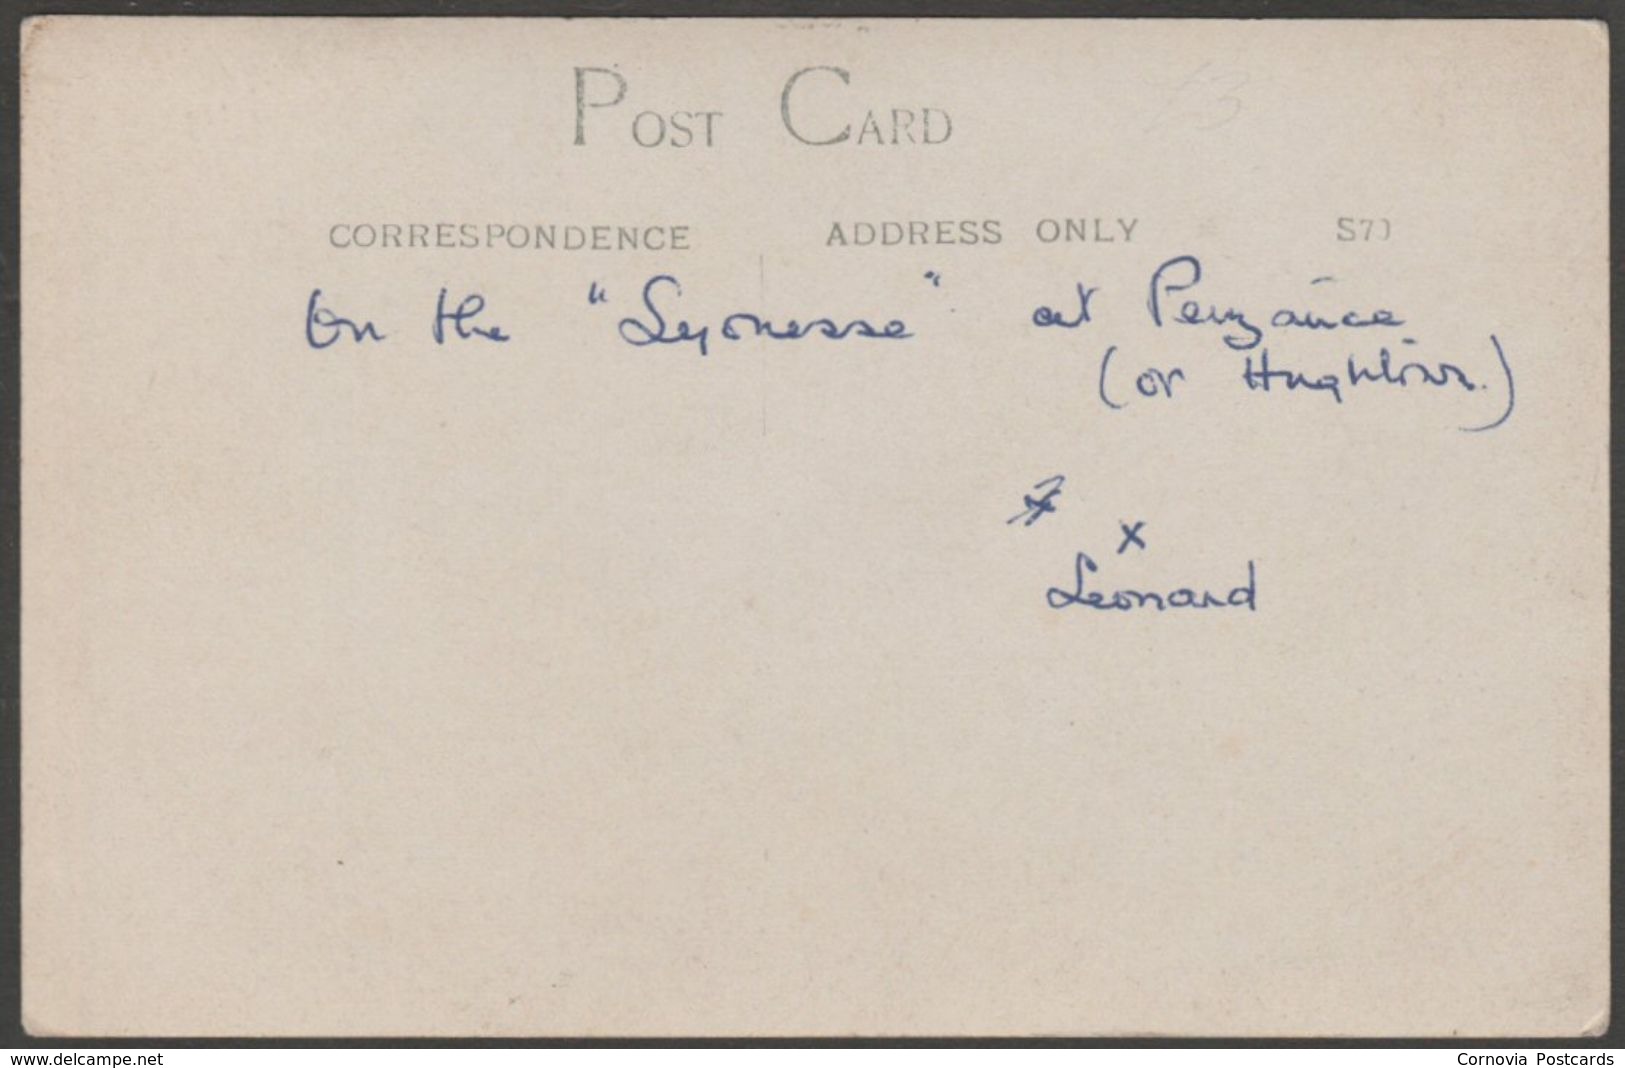 POST CARD
CORRESPONDENCE ADDRESS ONLY
On the "Lyonesse" at Penzance
(or Hughtown.)
x
Leonard
www.delcampe.net
Cornovia Postcards